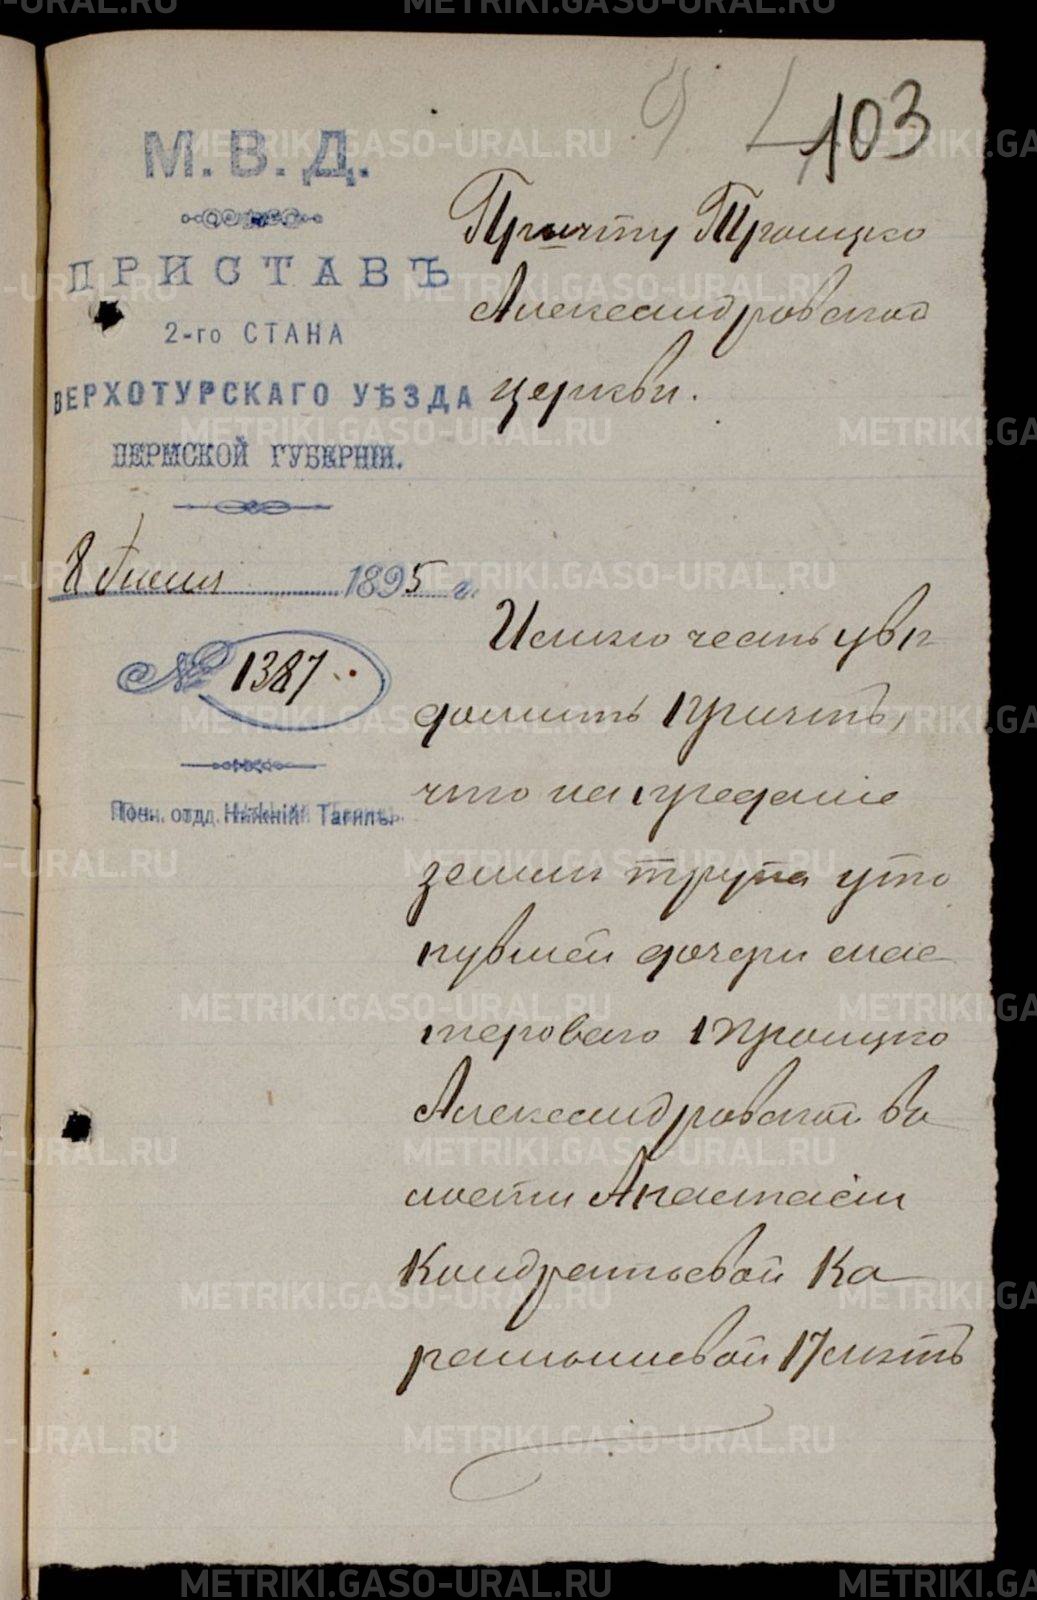 103
М. В. Д.
ПРИСТАВЪ
2-го СТАНА
ВЕРХОТУРСКАГО УѢЗДА
ПЕРМСКОЙ ГУБЕРНІИ.
8 Іюня 1895 г.
№ 1387
Почт. отдѣл. Нижній Тагилъ.
Причту Троицко
Александровской
церкви.
Имѣю честь увѣ
домить причтъ,
что на преданіе
земли трупа уто
нувшей дочери мас
терового Троицко
Александровской во
лости Анастасіи
Кондратьевой Ка
рамышевой 17 лѣтъ
METRIKI.GASO-URAL.RU